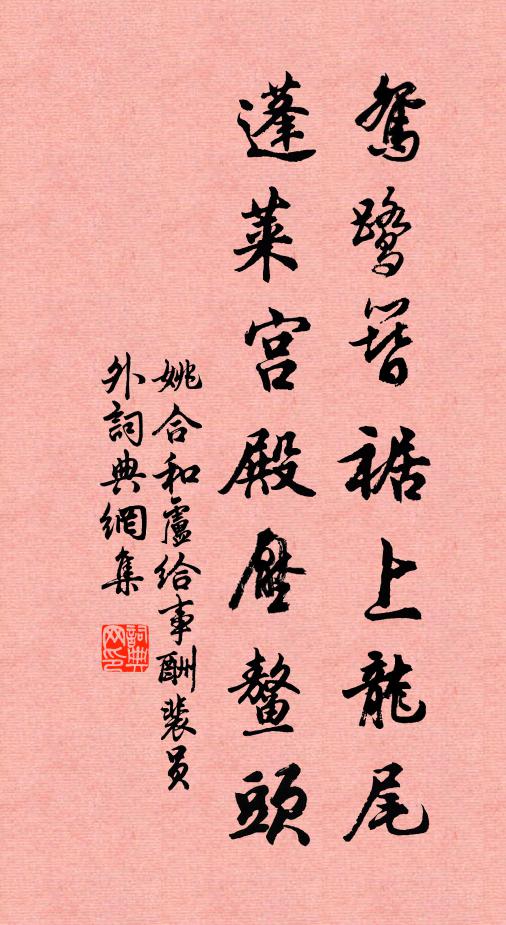 鴛鷺簪裾上龍尾
蓬萊宮殿壓鰲頭
姚合和盧給事酬裴員
外詞典網集
詞典
网印